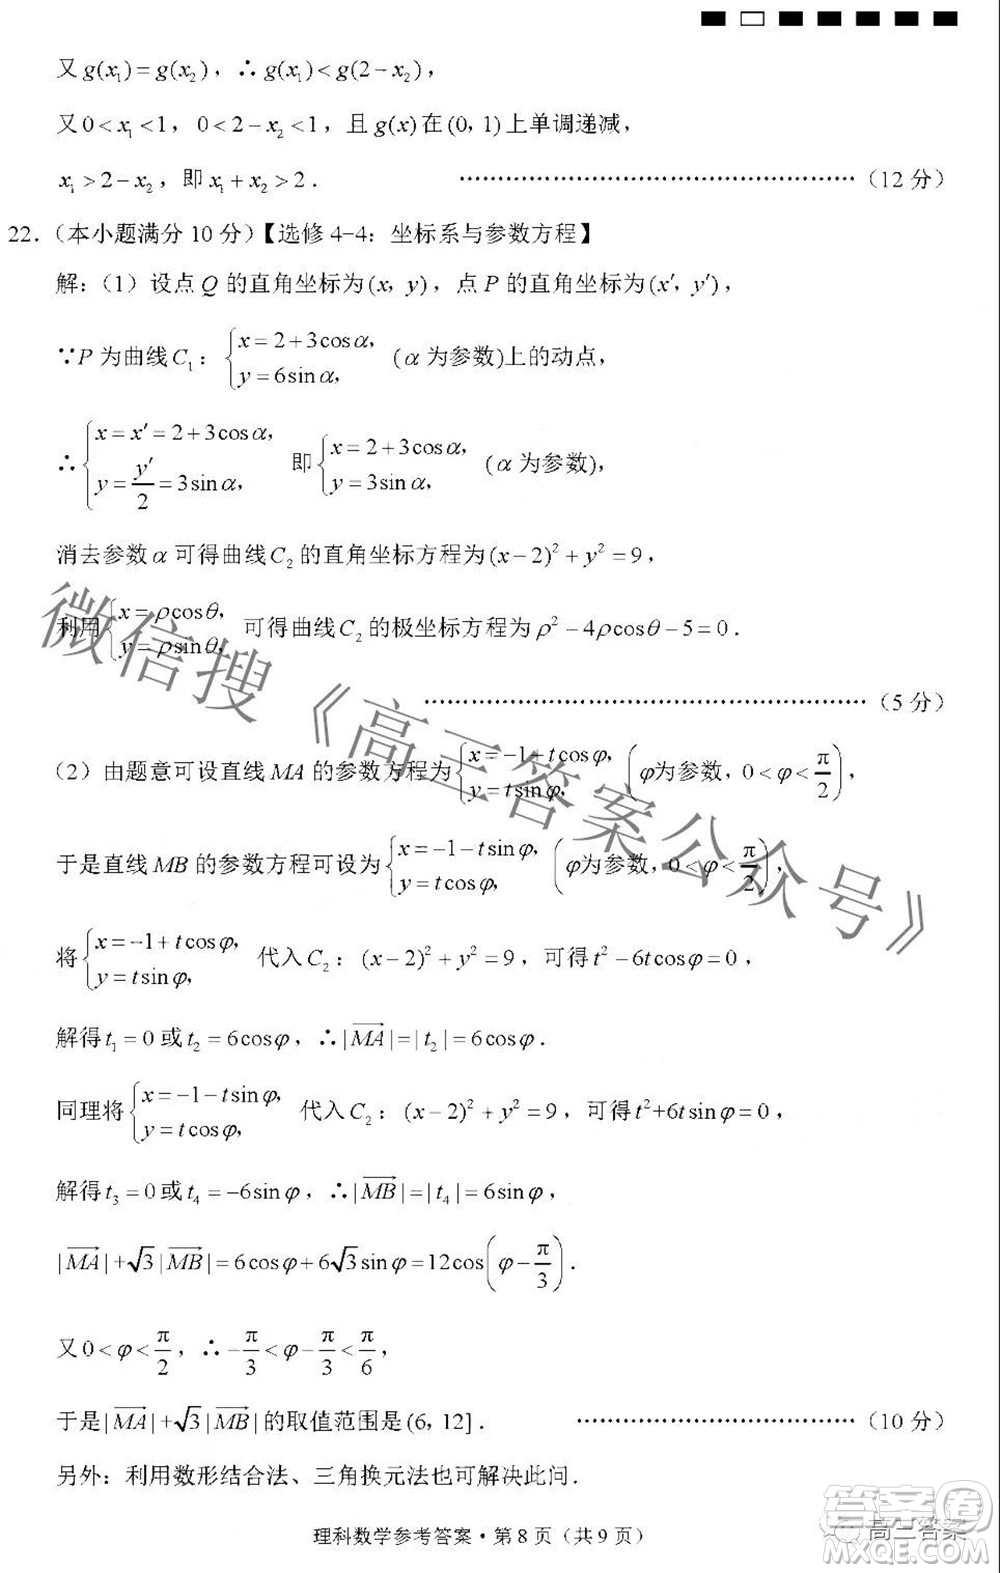 又 g(x₁)=g(x₂)，∴g(x₁)<g(2−x₂)，
又 0<x₁<1，0<2−x₂<1，且 g(x) 在 (0, 1) 上单调递减，
x₁>2−x₂，即 x₁+x₂>2． ………………………………………（12 分）
22．（本小题满分 10 分）【选修 4−4：坐标系与参数方程】
解：（1）设点 Q 的直角坐标为 (x, y)，点 P 的直角坐标为 (x′, y′)，
∵P 为曲线 C₁：{x=2+3cosα, y=6sinα, (α 为参数)上的动点，
∴{x=x′=2+3cosα, y=y′/2=3sinα, 即{x=2+3cosα, y=3sinα, (α 为参数),
消去参数 α 可得曲线 C₂ 的直角坐标方程为 (x−2)²+y²=9，
利用{x=ρcosθ, y=ρsinθ, 可得曲线 C₂ 的极坐标方程为 ρ²−4ρcosθ−5=0．
………………………………………（5 分）
（2）由题意可设直线 MA 的参数方程为{x=−1+tcosφ, y=tsinφ, (φ为参数, 0<φ<π/2)，
于是直线 MB 的参数方程可设为{x=−1−tsinφ, y=tcosφ, (φ为参数, 0<φ<π/2)，
将{x=−1+tcosφ, y=tsinφ, 代入 C₂：(x−2)²+y²=9，可得 t²−6tcosφ=0，
解得 t₁=0 或 t₂=6cosφ，∴|MA|=|t₂|=6cosφ．
同理将{x=−1−tsinφ, y=tcosφ, 代入 C₂：(x−2)²+y²=9，可得 t²+6tsinφ=0，
解得 t₃=0 或 t₄=−6sinφ，∴|MB|=|t₄|=6sinφ，
|MA|+√3|MB|=6cosφ+6√3sinφ=12cos(φ−π/3)．
又 0<φ<π/2，∴−π/3<φ−π/3<π/6，
于是|MA|+√3|MB|的取值范围是 (6, 12]． ……………………………（10 分）
另外：利用数形结合法、三角换元法也可解决此问．
理科数学参考答案·第 8 页（共 9 页）
微信搜《高三答案公众号》
答案卷
高三答案